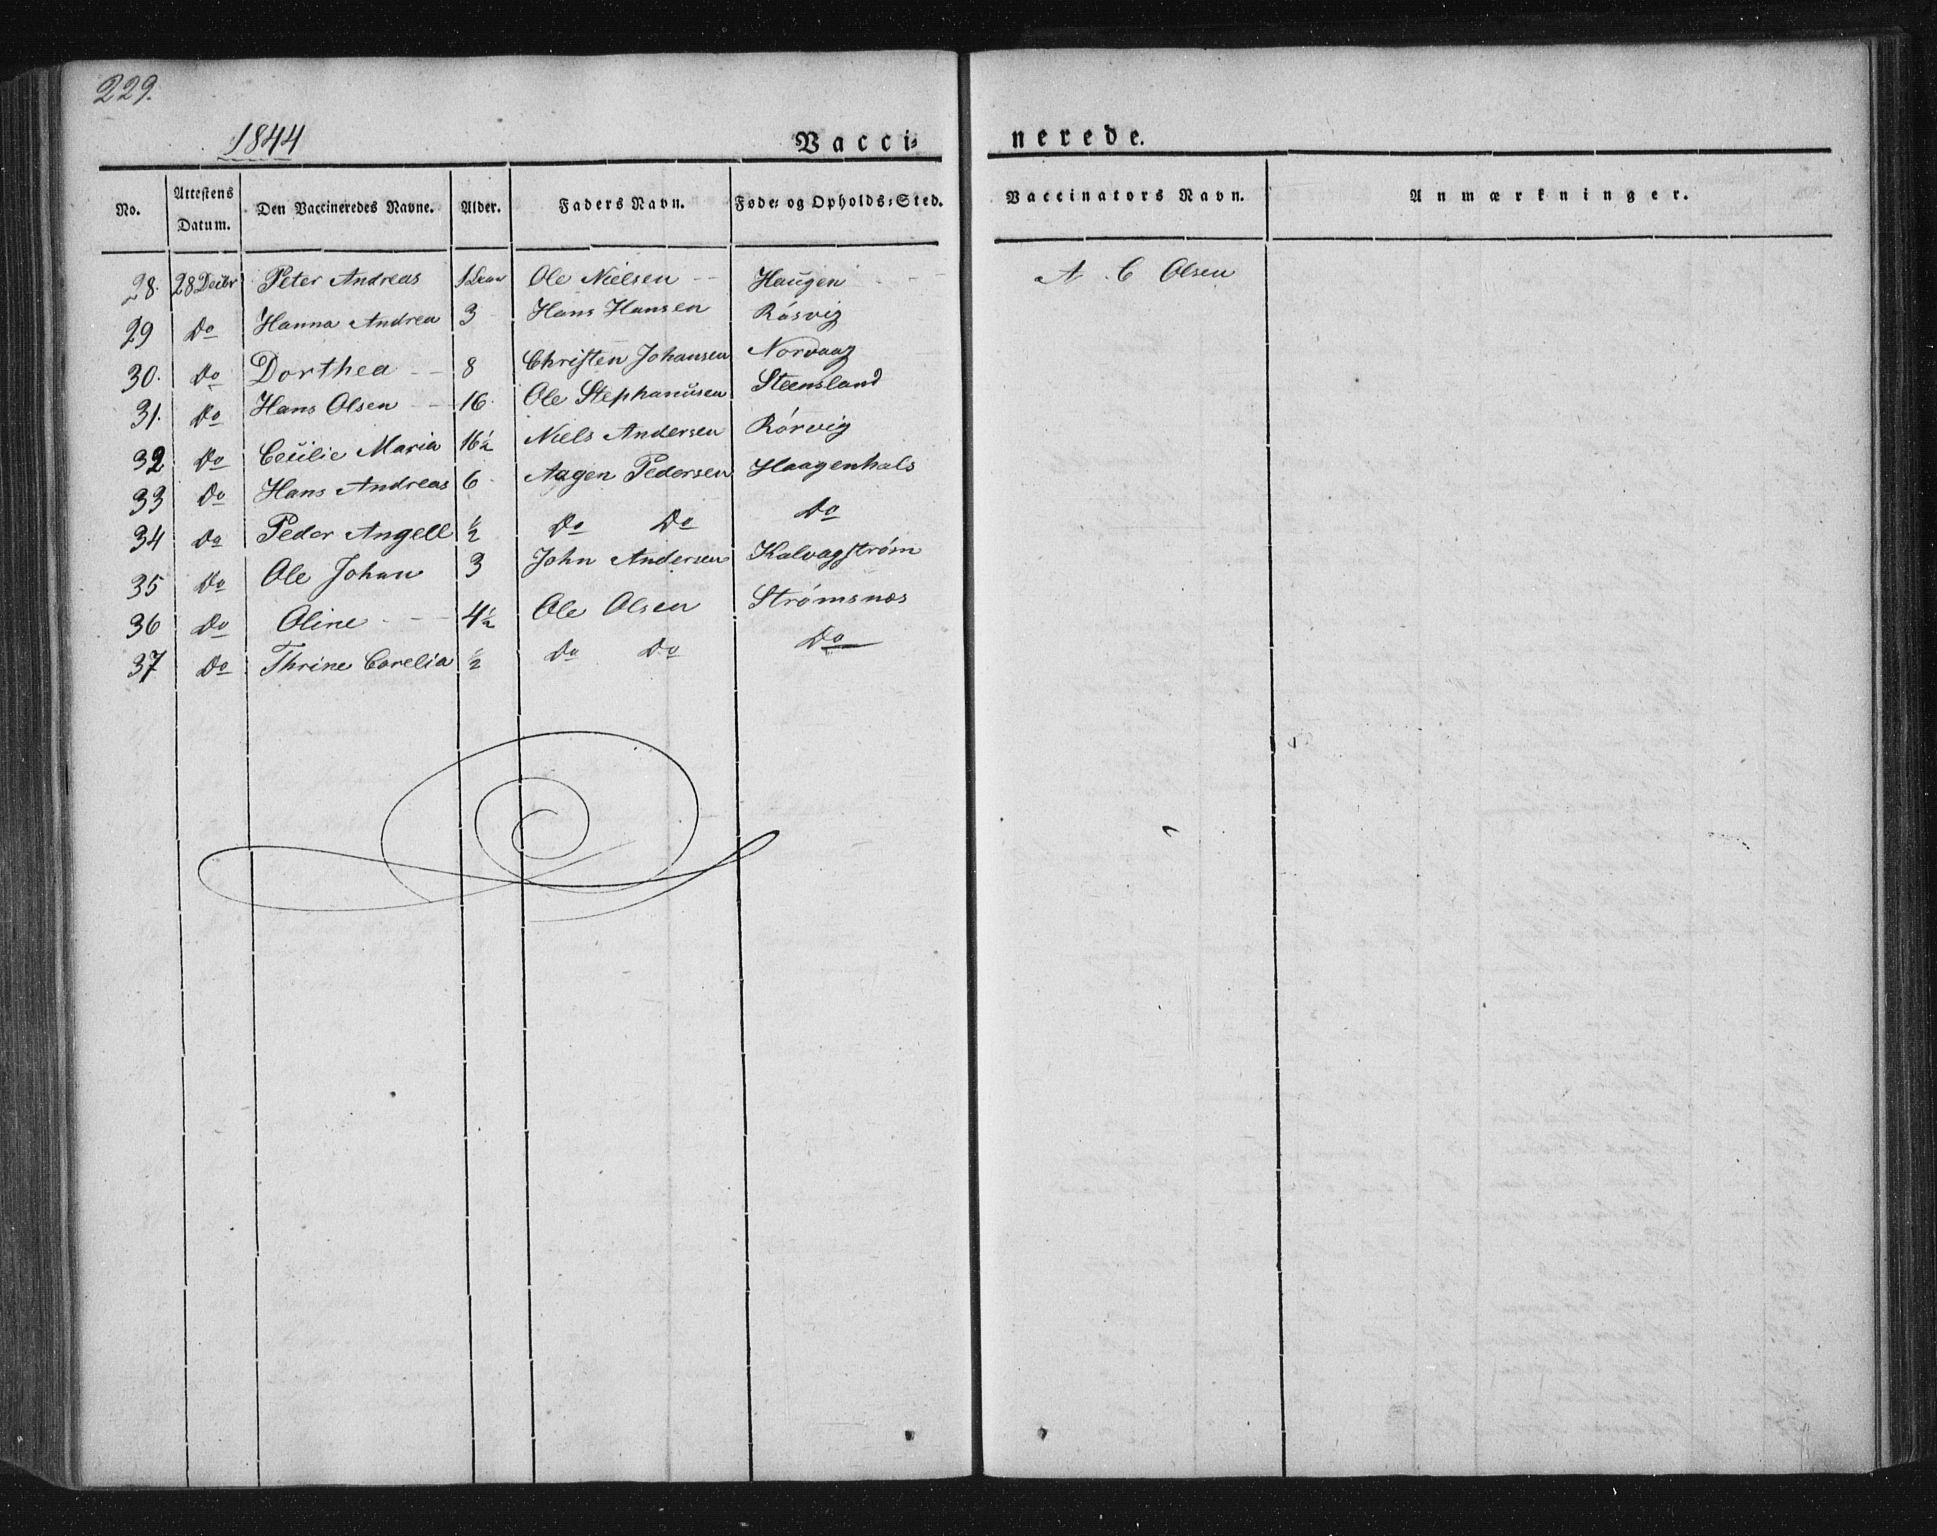 229.
1844
Vacci⸗nerede.
No. Attestens Datum. Den Vaccineredes Navne. Alder. Faders Navn. Føde⸗ og Opholds⸗Sted. Vaccinators Navn. Anmærkninger.
28. 28 Decbr Peter Andreas 1 Ole Nielsen Haugen A. C Olsen
29 Do Hanna Andrea 3 Hans Hansen Råsvig
30. Do Dorthea 8 Christen Johansen Nordaag
31. Do Hans Olsen 16 Ole Stephanusen Steensland
32 Do Cecilie Maria 16½ Niels Andersen Rørvig
33 Do Hans Andreas 6 Aagen Pedersen Haagenhals
34 Do Peder Angell ½ Do Do Do
35 Do Ole Johan 3 John Andersen Kalvagstrøm
36 Do Oline 4½ Ole Olsen Strømsnæs
37 Do Thrine Corelia ½ Do Do Do